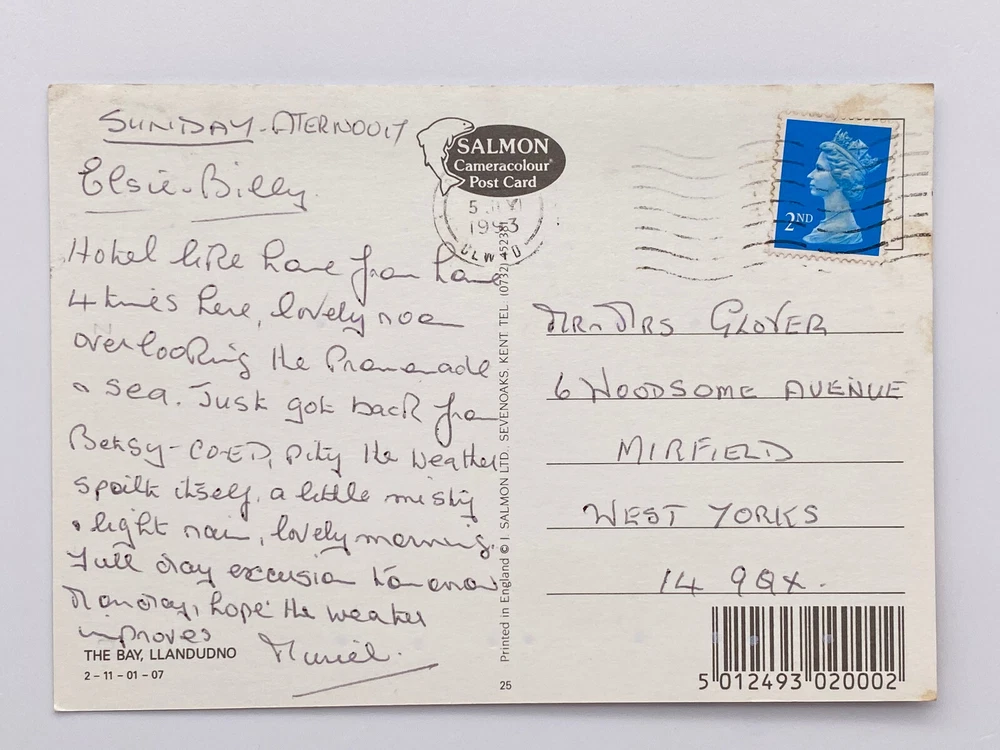 SUNDAY-ATERNOON
Elsie-Billy.
Hotel like home from home
4 times here, lovely room
overlooking the Promenade
& sea. Just got back from
Betsy-CO-ED, pity the weather
spoilt itself, a little misty
& light rain, lovely morning.
Full day excusion tomorrow
Monday, hope the weather
improves
Muriel.
THE BAY, LLANDUDNO
2 – 11 – 01 – 07
SALMON
Cameracolour®
Post Card
5
1993
CLWYD
Printed in England © J. SALMON LTD., SEVENOAKS, KENT. TEL: (0732) 452381
25
2ND
MR & MRS GLOVER
6 WOODSOME AVENUE
MIRFIELD
WEST YORKS
14 9QX.
5 012493 020002